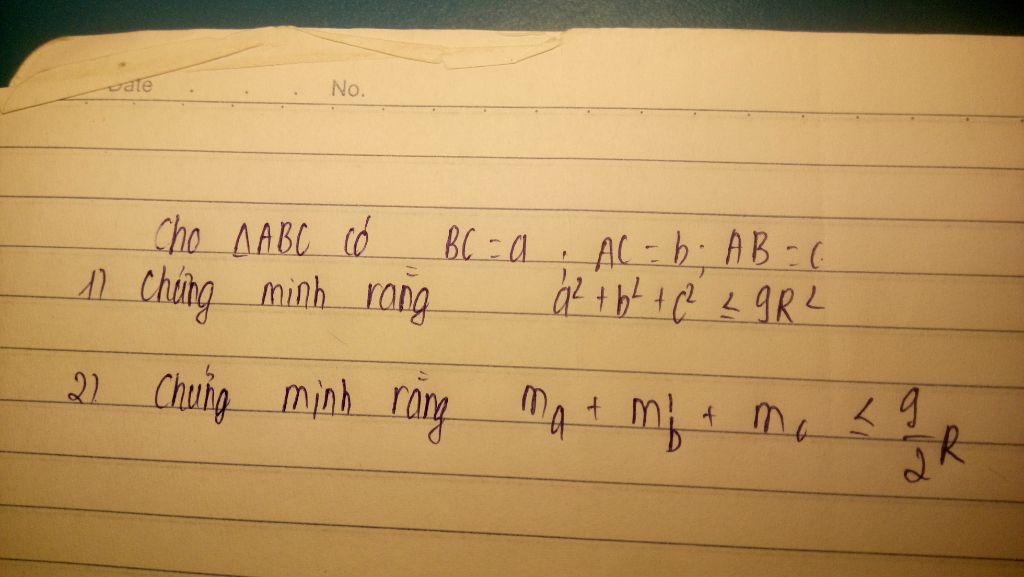 Date . . . No.
Cho ΔABC có BC = a ; AC = b ; AB = c
1) Chứng minh rằng a² + b² + c² ≤ 9R²
2) Chứng minh rằng mₐ + m_b + m_c ≤ 9/2 R